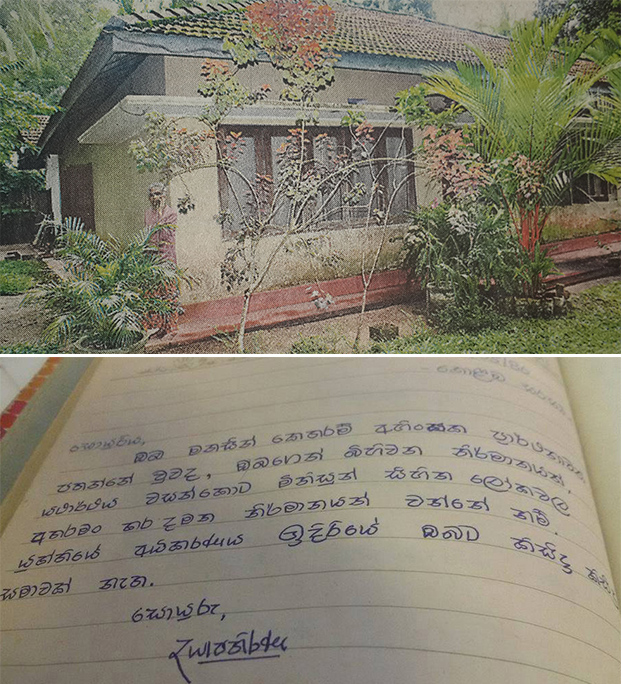 - කොළඹ
සොයුරිය,
ඔබ මනසින් කෙතරම් අහිංසක ප්‍රාර්ථනාවක්
පතන්නේ වුවද, ඔබගෙන් බිහිවන නිර්මානයක්,
යථාර්ථය වසන්කොට මිනිසුන් සිහින ලෝකවල
අතරමං කර දමන නිර්මානයක් වන්නේ නම්
යුක්තියේ අධිකරණය ඉදිරියේ ඔබට කිසිදු
සමාවක් නැත.
සොයුරු,
දයාපතිරණ